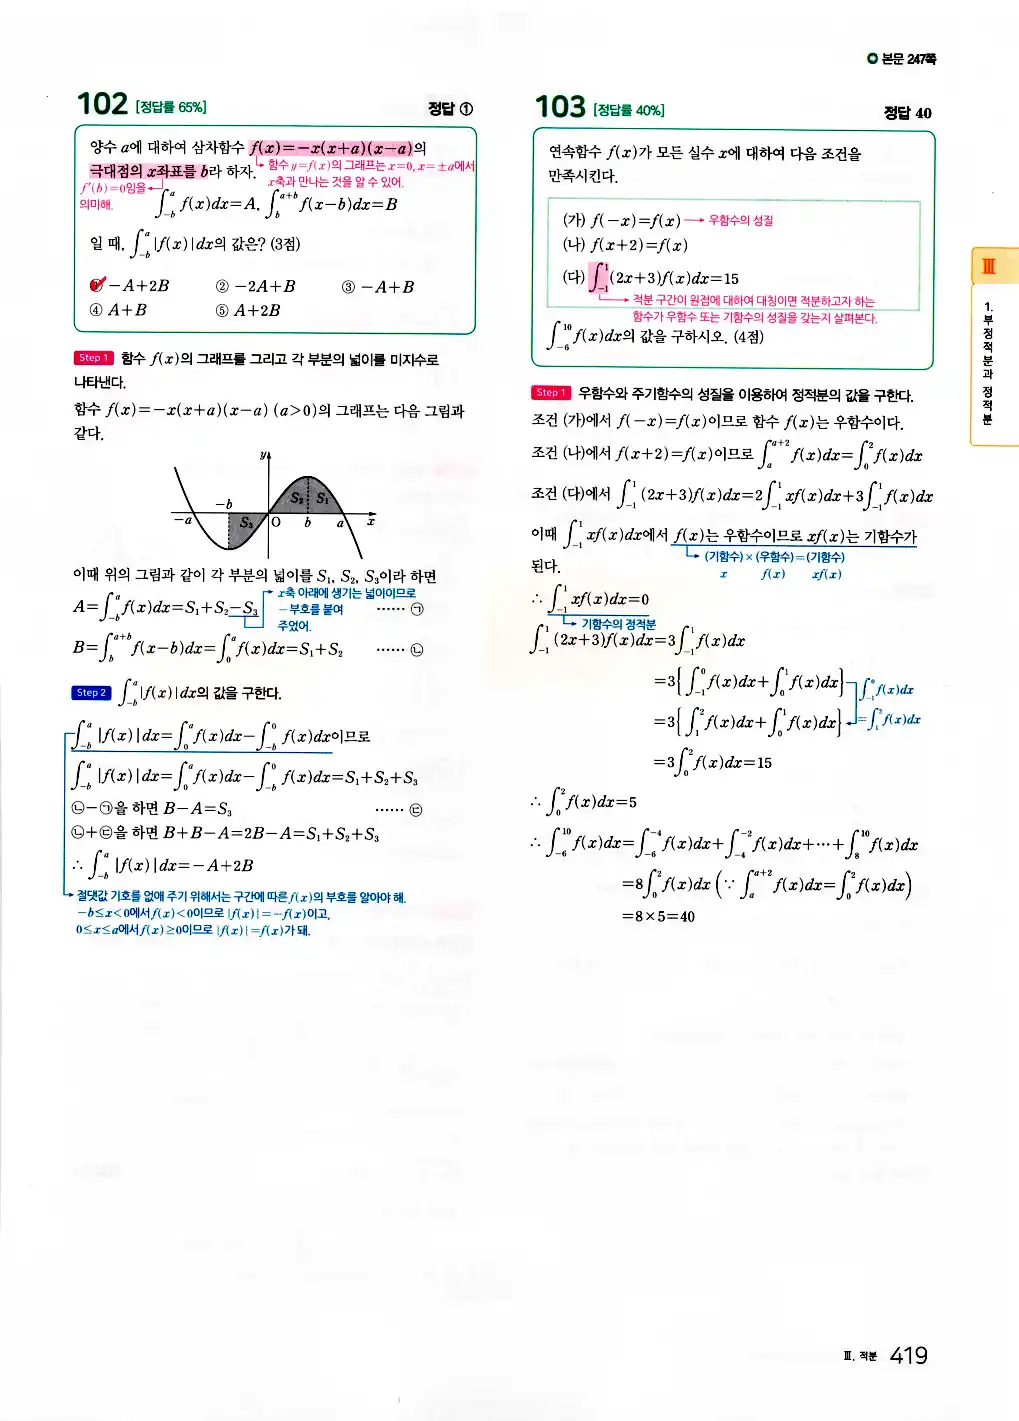 본문 247쪽
102 [정답률 65%] 정답 ①
양수 a에 대하여 삼차함수 f(x)=-x(x+a)(x-a)의
함수 y=f(x)의 그래프는 x=0, x=±a에서
극대점의 x좌표를 b라 하자.
x축과 만나는 것을 알 수 있어.
f'(b)=0임을
의미해.
∫_{-b}^{a} f(x)dx=A, ∫_{b}^{a+b} f(x-b)dx=B
일 때, ∫_{-b}^{a} |f(x)|dx의 값은? (3점)
① -A+2B ② -2A+B ③ -A+B
④ A+B ⑤ A+2B
Step 1 함수 f(x)의 그래프를 그리고 각 부분의 넓이를 미지수로
나타낸다.
함수 f(x)=-x(x+a)(x-a) (a>0)의 그래프는 다음 그림과
같다.
y
-b S₂ S₁
-a S₃ O b a x
이때 위의 그림과 같이 각 부분의 넓이를 S₁, S₂, S₃이라 하면
A=∫_{-b}^{a} f(x)dx=S₁+S₂-S₃ ······ ㉠
x축 아래에 생기는 넓이이므로
- 부호를 붙여
주었어.
B=∫_{b}^{a+b} f(x-b)dx=∫_{0}^{a} f(x)dx=S₁+S₂ ······ ㉡
Step 2 ∫_{-b}^{a} |f(x)|dx의 값을 구한다.
∫_{-b}^{a} |f(x)|dx=∫_{0}^{a} f(x)dx-∫_{-b}^{0} f(x)dx이므로
∫_{-b}^{a} |f(x)|dx=∫_{0}^{a} f(x)dx-∫_{-b}^{0} f(x)dx=S₁+S₂+S₃
㉡-㉠을 하면 B-A=S₃ ······ ㉢
㉡+㉢을 하면 B+B-A=2B-A=S₁+S₂+S₃
∴ ∫_{-b}^{a} |f(x)|dx=-A+2B
절댓값 기호를 없애 주기 위해서는 구간에 따른 f(x)의 부호를 알아야 해.
-b≤x<0에서 f(x)<0이므로 |f(x)|=-f(x)이고,
0≤x≤a에서 f(x)≥0이므로 |f(x)|=f(x)가 돼.
103 [정답률 40%] 정답 40
연속함수 f(x)가 모든 실수 x에 대하여 다음 조건을
만족시킨다.
(가) f(-x)=f(x) → 우함수의 성질
(나) f(x+2)=f(x)
(다) ∫_{-1}^{1} (2x+3)f(x)dx=15
적분 구간이 원점에 대하여 대칭이면 적분하고자 하는
함수가 우함수 또는 기함수의 성질을 갖는지 살펴본다.
∫_{-6}^{10} f(x)dx의 값을 구하시오. (4점)
Step 1 우함수와 주기함수의 성질을 이용하여 정적분의 값을 구한다.
조건 (가)에서 f(-x)=f(x)이므로 함수 f(x)는 우함수이다.
조건 (나)에서 f(x+2)=f(x)이므로 ∫_{a}^{a+2} f(x)dx=∫_{0}^{2} f(x)dx
조건 (다)에서 ∫_{-1}^{1} (2x+3)f(x)dx=2∫_{-1}^{1} xf(x)dx+3∫_{-1}^{1} f(x)dx
이때 ∫_{-1}^{1} xf(x)dx에서 f(x)는 우함수이므로 xf(x)는 기함수가
(기함수)×(우함수)=(기함수)
된다.
x f(x) xf(x)
∴ ∫_{-1}^{1} xf(x)dx=0
기함수의 정적분
∫_{-1}^{1} (2x+3)f(x)dx=3∫_{-1}^{1} f(x)dx
=3{∫_{-1}^{0} f(x)dx+∫_{0}^{1} f(x)dx} ∫_{-1}^{0} f(x)dx
=3{∫_{1}^{2} f(x)dx+∫_{0}^{1} f(x)dx} =∫_{1}^{2} f(x)dx
=3∫_{0}^{2} f(x)dx=15
∴ ∫_{0}^{2} f(x)dx=5
∴ ∫_{-6}^{10} f(x)dx=∫_{-6}^{-4} f(x)dx+∫_{-4}^{-2} f(x)dx+···+∫_{8}^{10} f(x)dx
=8∫_{0}^{2} f(x)dx (∵ ∫_{a}^{a+2} f(x)dx=∫_{0}^{2} f(x)dx)
=8×5=40
Ⅲ
1. 부정적분과 정적분
Ⅲ. 적분 419